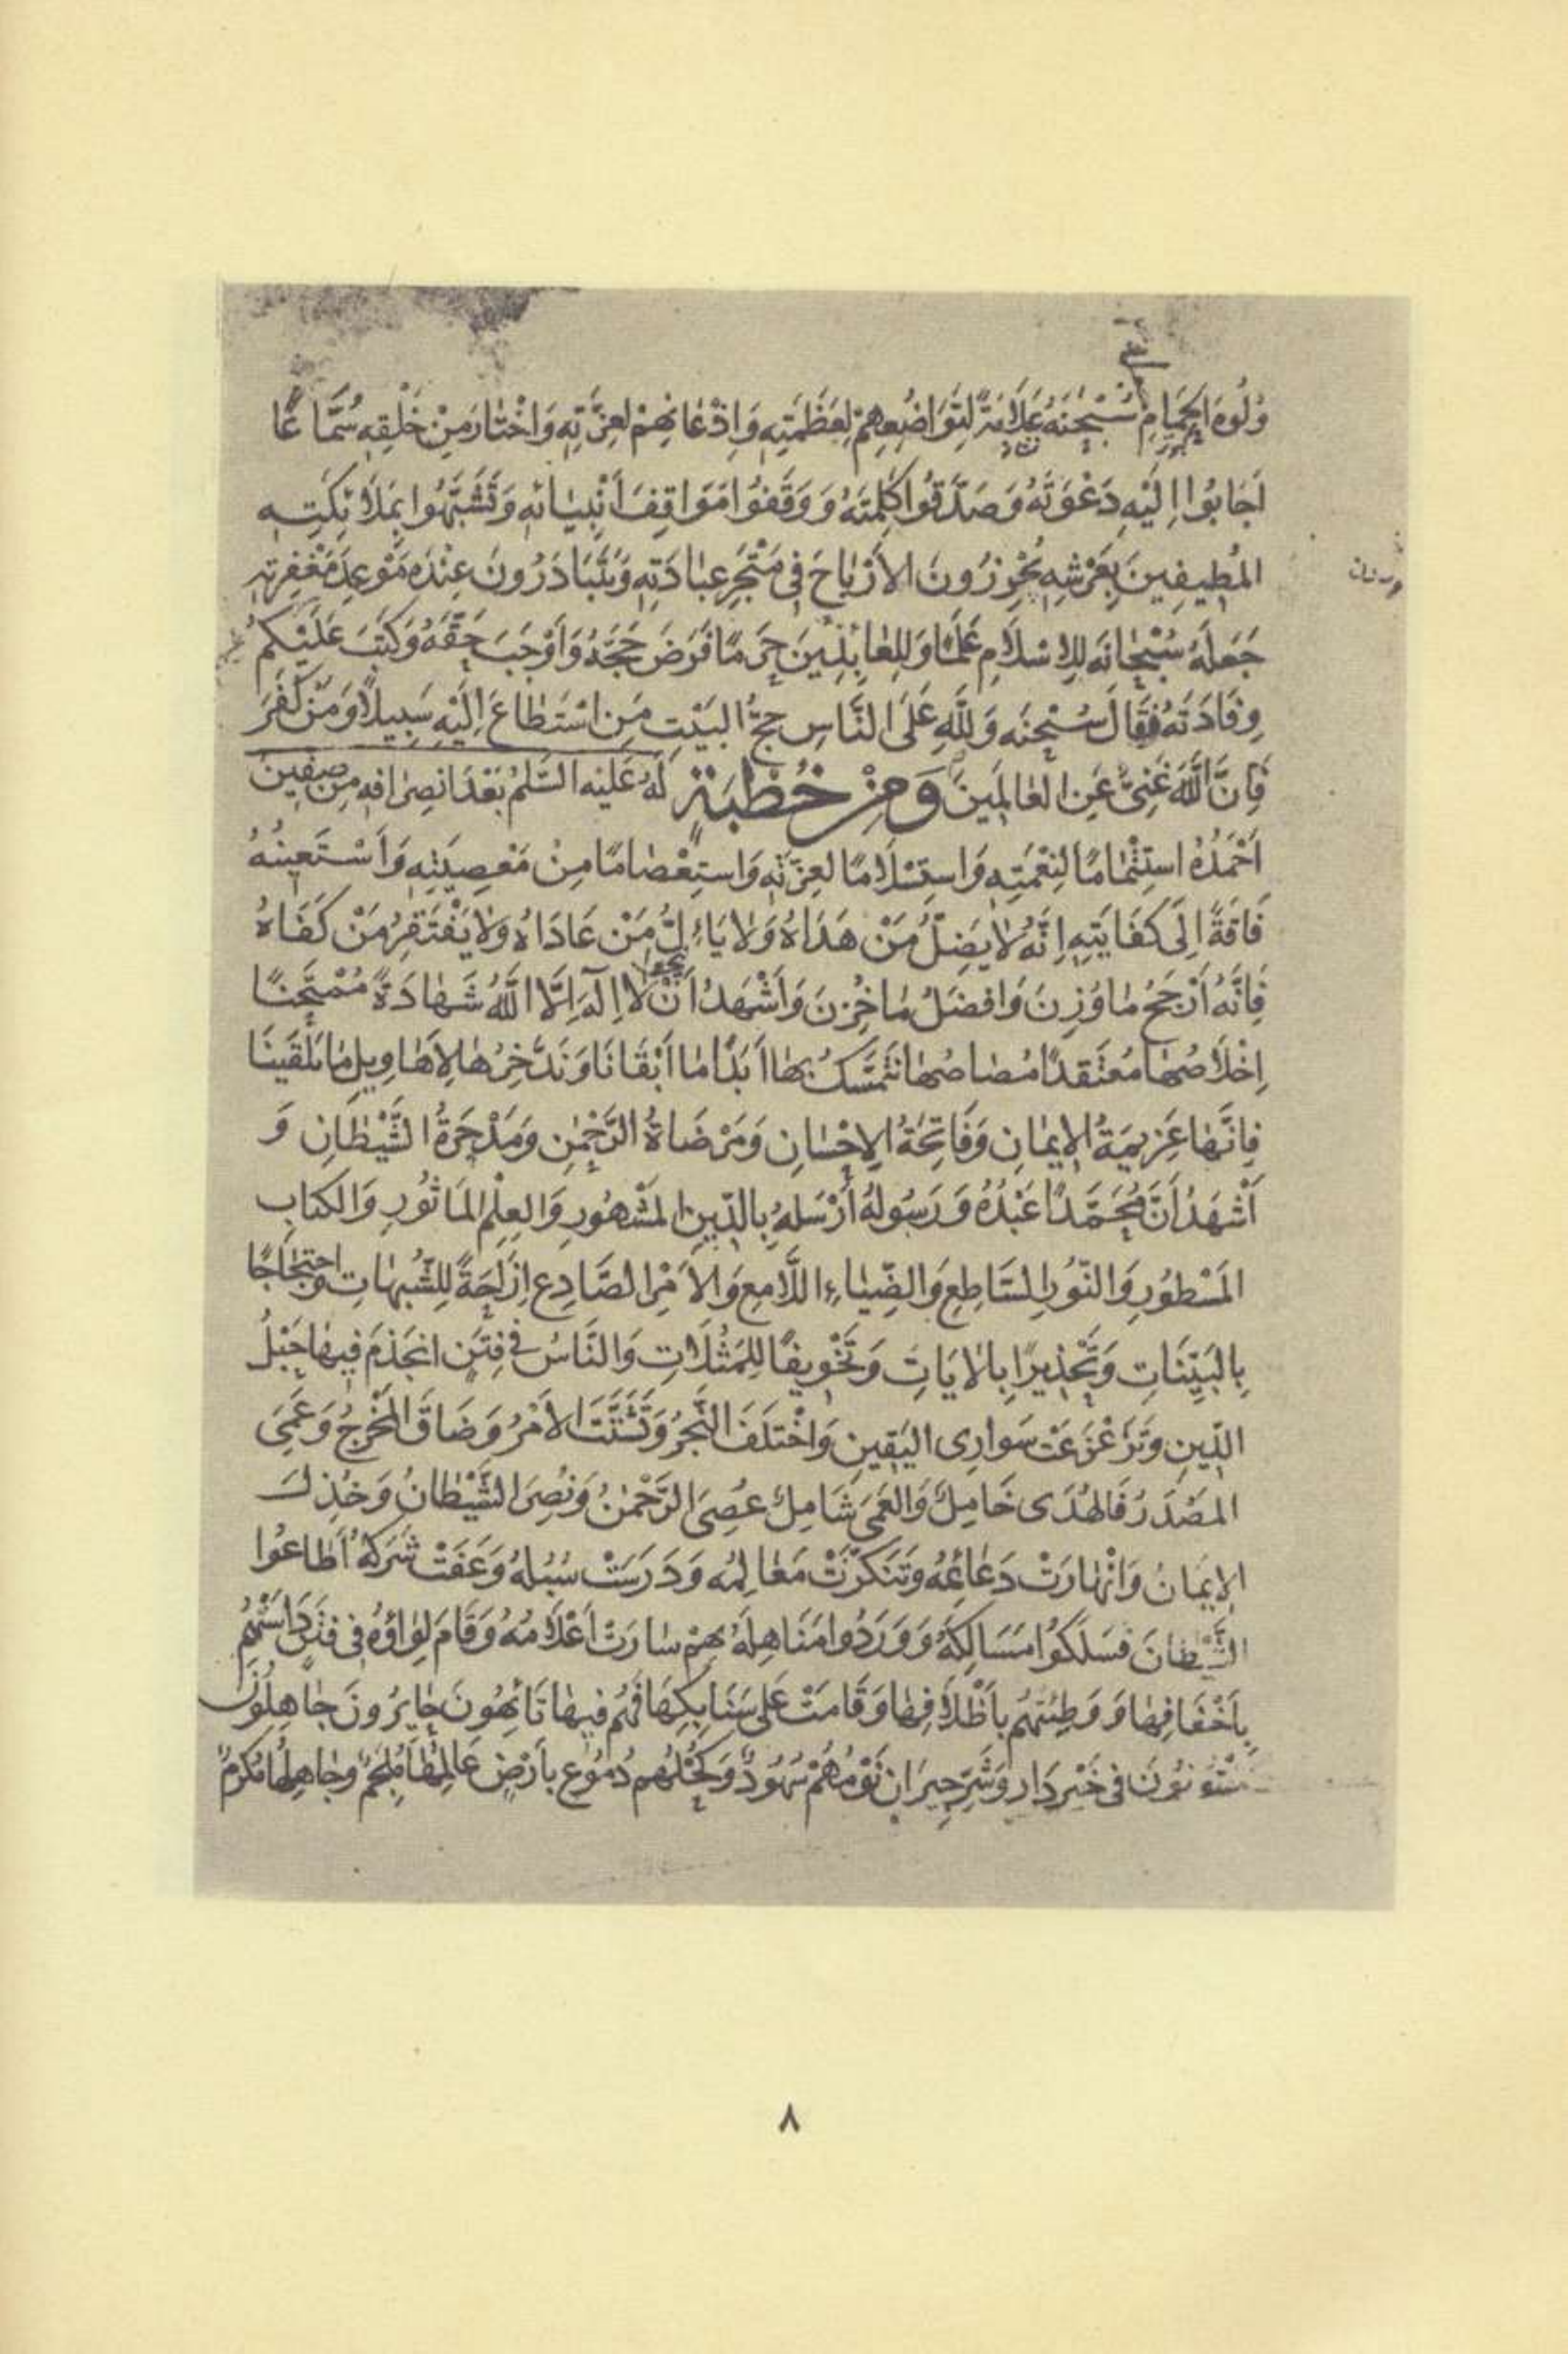 وُلُوهَ الْحَمَامِ سُبْحٰنَهُ عَلَامَةً لِتَوَاضُعِهِمْ لِعَظَمَتِهِ وَاِذْعَانِهِمْ لِعِزَّتِهِ وَاخْتَارَ مِنْ خَلْقِهِ سُمَّاعًا
اَجَابُوا اِلَيْهِ دَعْوَتَهُ وَصَدَّقُوا كَلِمَتَهُ وَوَقَفُوا مَوَاقِفَ اَنْبِيَائِهِ وَتَشَبَّهُوا بِمَلَائِكَتِهِ
المُطِيفِينَ بِعَرْشِهِ يُحْرِزُونَ الأَرْبَاحَ فِى مَتْجَرِ عِبَادَتِهِ وَيَتَبَادَرُونَ عِنْدَهُ مَوْعِدَ مَغْفِرَتِهِ
جَعَلَهُ سُبْحَانَه لِلاِسْلَامِ عَلَمًا وَلِلعَائِذِينَ حَرَمًا فَرَضَ حَجَّهُ وَاَوْجَبَ حَقَّهُ وَكَتَبَ عَلَيْكُمْ
وِفَادَتَهُ فَقَالَ سُبْحٰنَه وَلِلّٰهِ عَلَى النَّاسِ حِجُّ البَيْتِ مَنِ اسْتَطَاعَ اِلَيْهِ سَبِيلًا وَمَنْ كَفَرَ
فَاِنَّ اللّٰهَ غَنِىٌّ عَنِ العَالَمِينَ وَمِنْ خُطْبَةٍ لَهُ عَلَيْهِ السَّلٰمُ بَعْدَ انصِرَافِهِ مِن صِفِّين
اَحْمَدُهُ اسْتِتْمَامًا لِنِعْمَتِهِ وَاسْتِسْلَامًا لِعِزَّتِهِ وَاسْتِعْصَامًا مِنْ مَعْصِيَتِهِ وَاَسْتَعِينُهُ
فَاقَةً اِلَى كِفَايَتِهِ اِنَّهُ لَا يَضِلُّ مَنْ هَدَاهُ وَلَا يَاءِلُ مَنْ عَادَاهُ وَلَا يَفْتَقِرُ مَنْ كَفَاهُ
فَاِنَّهُ اَرْجَحُ مَا وُزِنَ وَافضَلُ مَا خُزِنَ وَاَشْهَدُ اَنْ لَا اِلَهَ اِلَّا اللّٰهُ شَهَادَةً مُمْتَحَنًا
اِخْلَاصُهَا مُعْتَقَدًا مُصَاصُهَا نَتَمَسَّكُ بِهَا اَبَدًا مَا اَبْقَانَا وَنَدَّخِرُهَا لِاَهَاوِيلِ مَا يَلْقَيْنَا
فَاِنَّهَا عَزِيمَةُ الاِيمَانِ وَفَاتِحَةُ الاِحْسَانِ وَمَرْضَاةُ الرَّحْمٰنِ وَمَدْحَرَةُ الشَّيْطَانِ وَ
اَشْهَدُ اَنَّ مُحَمَّدًا عَبْدُهُ وَرَسُولُهُ أَرْسَلَهُ بِالدِّينِ المَشْهُورِ وَالعِلْمِ المَأثُورِ وَالكِتَابِ
المَسْطُورِ وَالنُّورِ السَّاطِعِ وَالضِّيَاءِ اللَّامِعِ وَالاَمْرِ الصَّادِعِ اِزَاحَةً لِلشُّبُهَاتِ وَاحْتِجَاجًا
بِالبَيِّنَاتِ وَتَحْذِيرًا بِالاٰيَاتِ وَتَخْوِيفًا لِلمَثُلَاتِ وَالنَّاسُ فِى فِتَنٍ انْجَذَمَ فِيهَا حَبْلُ
الدِّينِ وَتَزَعْزَعَتْ سَوَارِى اليَقِينِ وَاخْتَلَفَ النَّجْرُ وَتَشَتَّتَ الاَمْرُ وَضَاقَ المَخْرَجُ وَعَمِىَ
المَصْدَرُ فَالهُدَى خَامِلٌ وَالعَمَى شَامِلٌ عُصِىَ الرَّحْمٰنُ وَنُصِرَ الشَّيْطَانُ وَخُذِلَ
الاِيمَانُ وَانْهَارَتْ دَعَائِمُهُ وَتَنَكَّرَتْ مَعَالِمُه وَدَرَسَتْ سُبُلُهُ وَعَفَتْ شُرُكُهُ اَطَاعُوا
الشَّيْطَانَ فَسَلَكُوا مَسَالِكَهُ وَوَرَدُوا مَنَاهِلَهُ بِهِمْ سَارَتْ اَعْلَامُهُ وَقَامَ لِوَاؤُهُ فِى فِتَنٍ دَاسَتْهُمْ
بِاَخْفَافِهَا وَوَطِئَتْهُمْ بِاَظْلَافِهَا وَقَامَتْ عَلَى سَنَابِكِهَا فَهُمْ فِيهَا تَائِهُونَ حَايِرُونَ جَاهِلُونَ
مَفْتُونُونَ فِى خَيْرِ دَارٍ وَشَرِّ جِيرَانٍ نَوْمُهُمْ سُهُودٌ وَكُحْلُهُمْ دُمُوعٌ بِاَرْضٍ عَالِمُهَا مُلْجَمٌ وَجَاهِلُهَا مُكْرَمٌ
٨